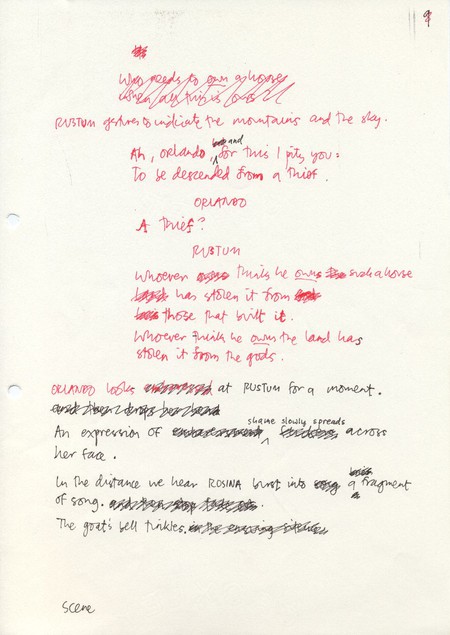 9
Who needs to own a house
when all this is ours
RUSTUM gestures to indicate the mountains and the sky.
Ah, ORLANDO, and for this I pity you:
To be descended from a thief.
ORLANDO
A thief?
RUSTUM
Whoever thinks he owns such a house
has stolen it from
those that built it.
Whoever think he owns the land has
stolen it from the gods.
ORLANDO looks at RUSTUM for a moment.
and then drops her head
shame slowly spreads
An expression of across
her face.
In the distance we hear ROSINA burst into song a fragment
of song.
The goat's bell tinkles. in the ensuing silence
Scene